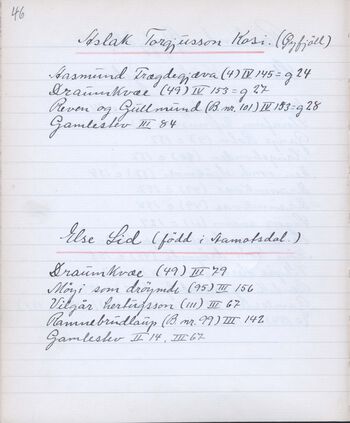 46
Aslak Torgjusson Kosi. (Gyfjöll)
Aasmund Frægdegjæva (4) IV 145 = g 24
Draumkvæe (49) IV 153 = g 27
Reven og Gullmund (B. nr. 101) IV 153 = g 28
Gamlestev III 84
Else Lid (född i Aamotsdal.)
Draumkvæe (49) III 79
Möyi som dröymde (95) III 156
Vilgår hertugsson (111) III 67
Ramnebrudlaup (B. nr. 99) III 142
Gamlestev II 14, III 67